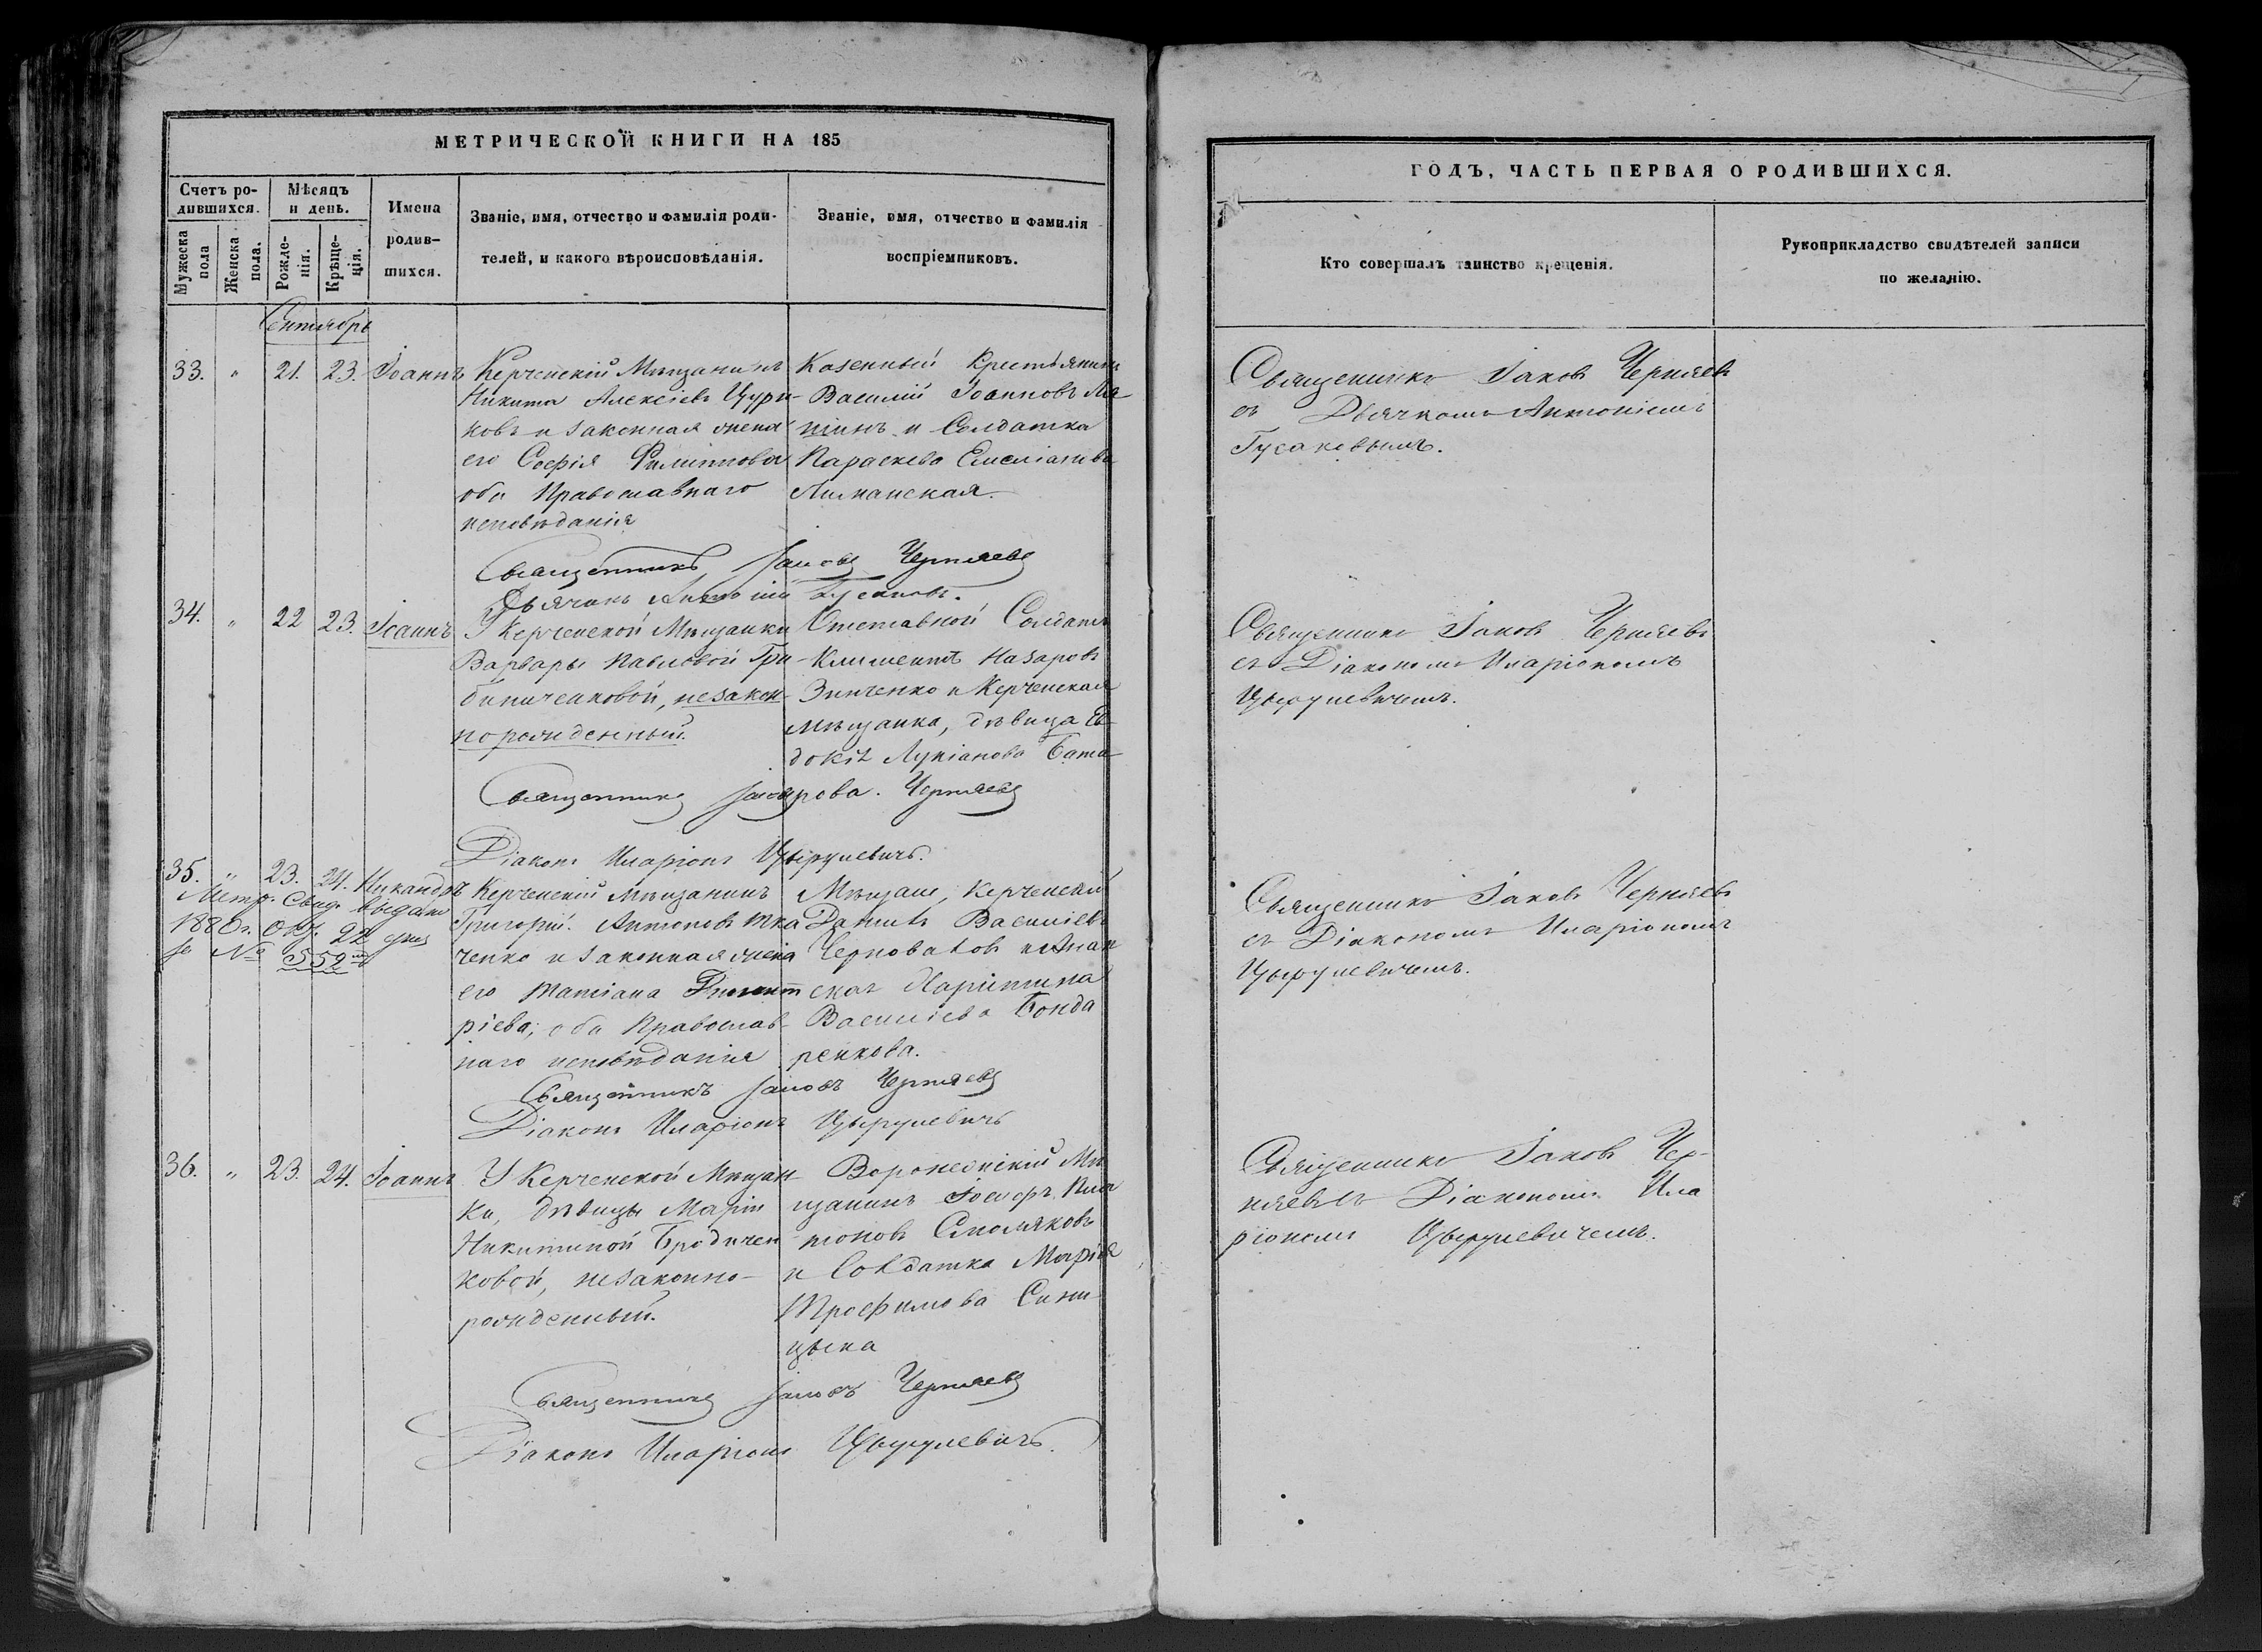 МЕТРИЧЕСКОЙ КНИГИ НА 185
Счетъ ро-
дившихся.
Мѣсяцъ
и день.
Имена
родив-
шихся.
Званіе, имя, отчество и фамилія роди-
телей, и какого вѣроисповѣданія.
Званіе, имя, отчество и фамилія
воспріемниковъ.
Мужеска
пола
Женска
пола.
Рожде-
нія.
Крѣще-
нія.
Сентябрь
33. " 21. 23. Іоаннъ
Керченскій Мѣщанинъ
Никита Алексіевъ Цури-
ковъ и законная жена
его Софія Филиппова
оба Православнаго
исповѣданія
Казенный Крестьянинъ
Василій Іоанновъ
и Солдатка
Параскева
Лиманская.
Священникъ Іаковъ Черняевъ
Дьячекъ Антоній Гусаковъ.
34. " 22 23. Іоаннъ
У Керченской Мѣщанки
Варвары Павловой Гри-
биниченковой, незакон-
норожденный.
Отставной Солдатъ
Климентъ Назаровъ
Зинченко и Керченская
мѣщанка, дѣвица Ев-
докія Лукіанова Бата-
рова.
Священникъ Іаковъ Черняевъ
Діаконъ Иларіонъ Цырулевичъ.
35. " 23. 24. Никандръ
Метр. Свид. выдано
1880 г. Окт. 22 дня
за № 552
Керченскій Мѣщанинъ
Григорій Антоновъ Тка
ченко и законная жена
его Татіана
ріева; оба Православ-
наго исповѣданія
Мѣщане, Керченскій
Даніилъ Васильевъ
Черноваловъ и Анап
ская Харитина
Васильева Бонда
ренкова.
Священникъ Іаковъ Черняевъ
Діаконъ Иларіонъ Цырулевичъ
36. " 23. 24. Іоаннъ
У Керченской Мѣщан-
ки, дѣвицы Маріи
Никитиной Бродичен
ковой, незаконно-
рожденный.
Воронежскій Мѣ
щанинъ Іосифъ Пла
тоновъ Смоляковъ
и Солдатка Марія
Трофимова Сини
цына
Священникъ Іаковъ Черняевъ
Діаконъ Иларіонъ Цырулевичъ.
ГОДЪ, ЧАСТЬ ПЕРВАЯ О РОДИВШИХСЯ.
Кто совершалъ таинство крещенія.
Рукоприкладство свидѣтелей записи
по желанію.
Священникъ Іаковъ Черняевъ
съ Дьячкомъ Антоніемъ
Гусаковымъ.
Священникъ Іаковъ Черняевъ
съ Діакономъ Иларіономъ
Цырулевичемъ.
Священникъ Іаковъ Черняевъ
съ Діакономъ Иларіономъ
Цырулевичемъ.
Священникъ Іаковъ Чер-
няевъ съ Діакономъ Ила
ріономъ Цырулевичемъ.